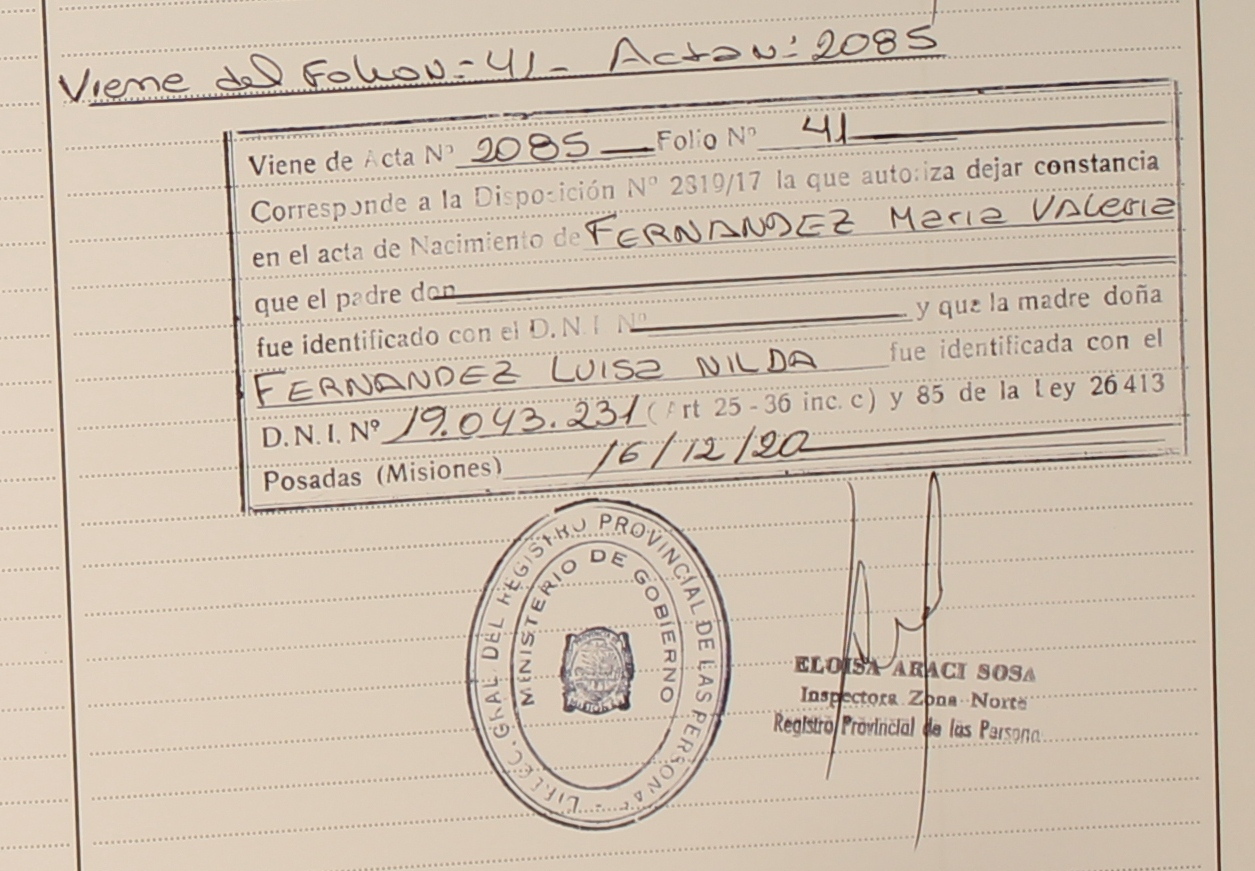 Viene del Folio N: 41 - Acta N: 2085
Viene de Acta Nº 2085 Folio Nº 41
Corresponde a la Disposición Nº 2819/17 la que autoriza dejar constancia
en el acta de Nacimiento de FERNANDEZ Maria VALERIA
que el padre don
fue identificado con el D.N.I. Nº y que la madre doña
FERNANDEZ LUISA NILDA fue identificada con el
D.N.I. Nº 19.043.231 (Art 25 - 36 inc. c) y 85 de la Ley 26413
Posadas (Misiones) 16/12/20
DIREC. GRAL. DEL REGISTRO PROVINCIAL DE LAS PERSONAS
MINISTERIO DE GOBIERNO
ELOISA ARACI SOSA
Inspectora Zona Norte
Registro Provincial de las Persona